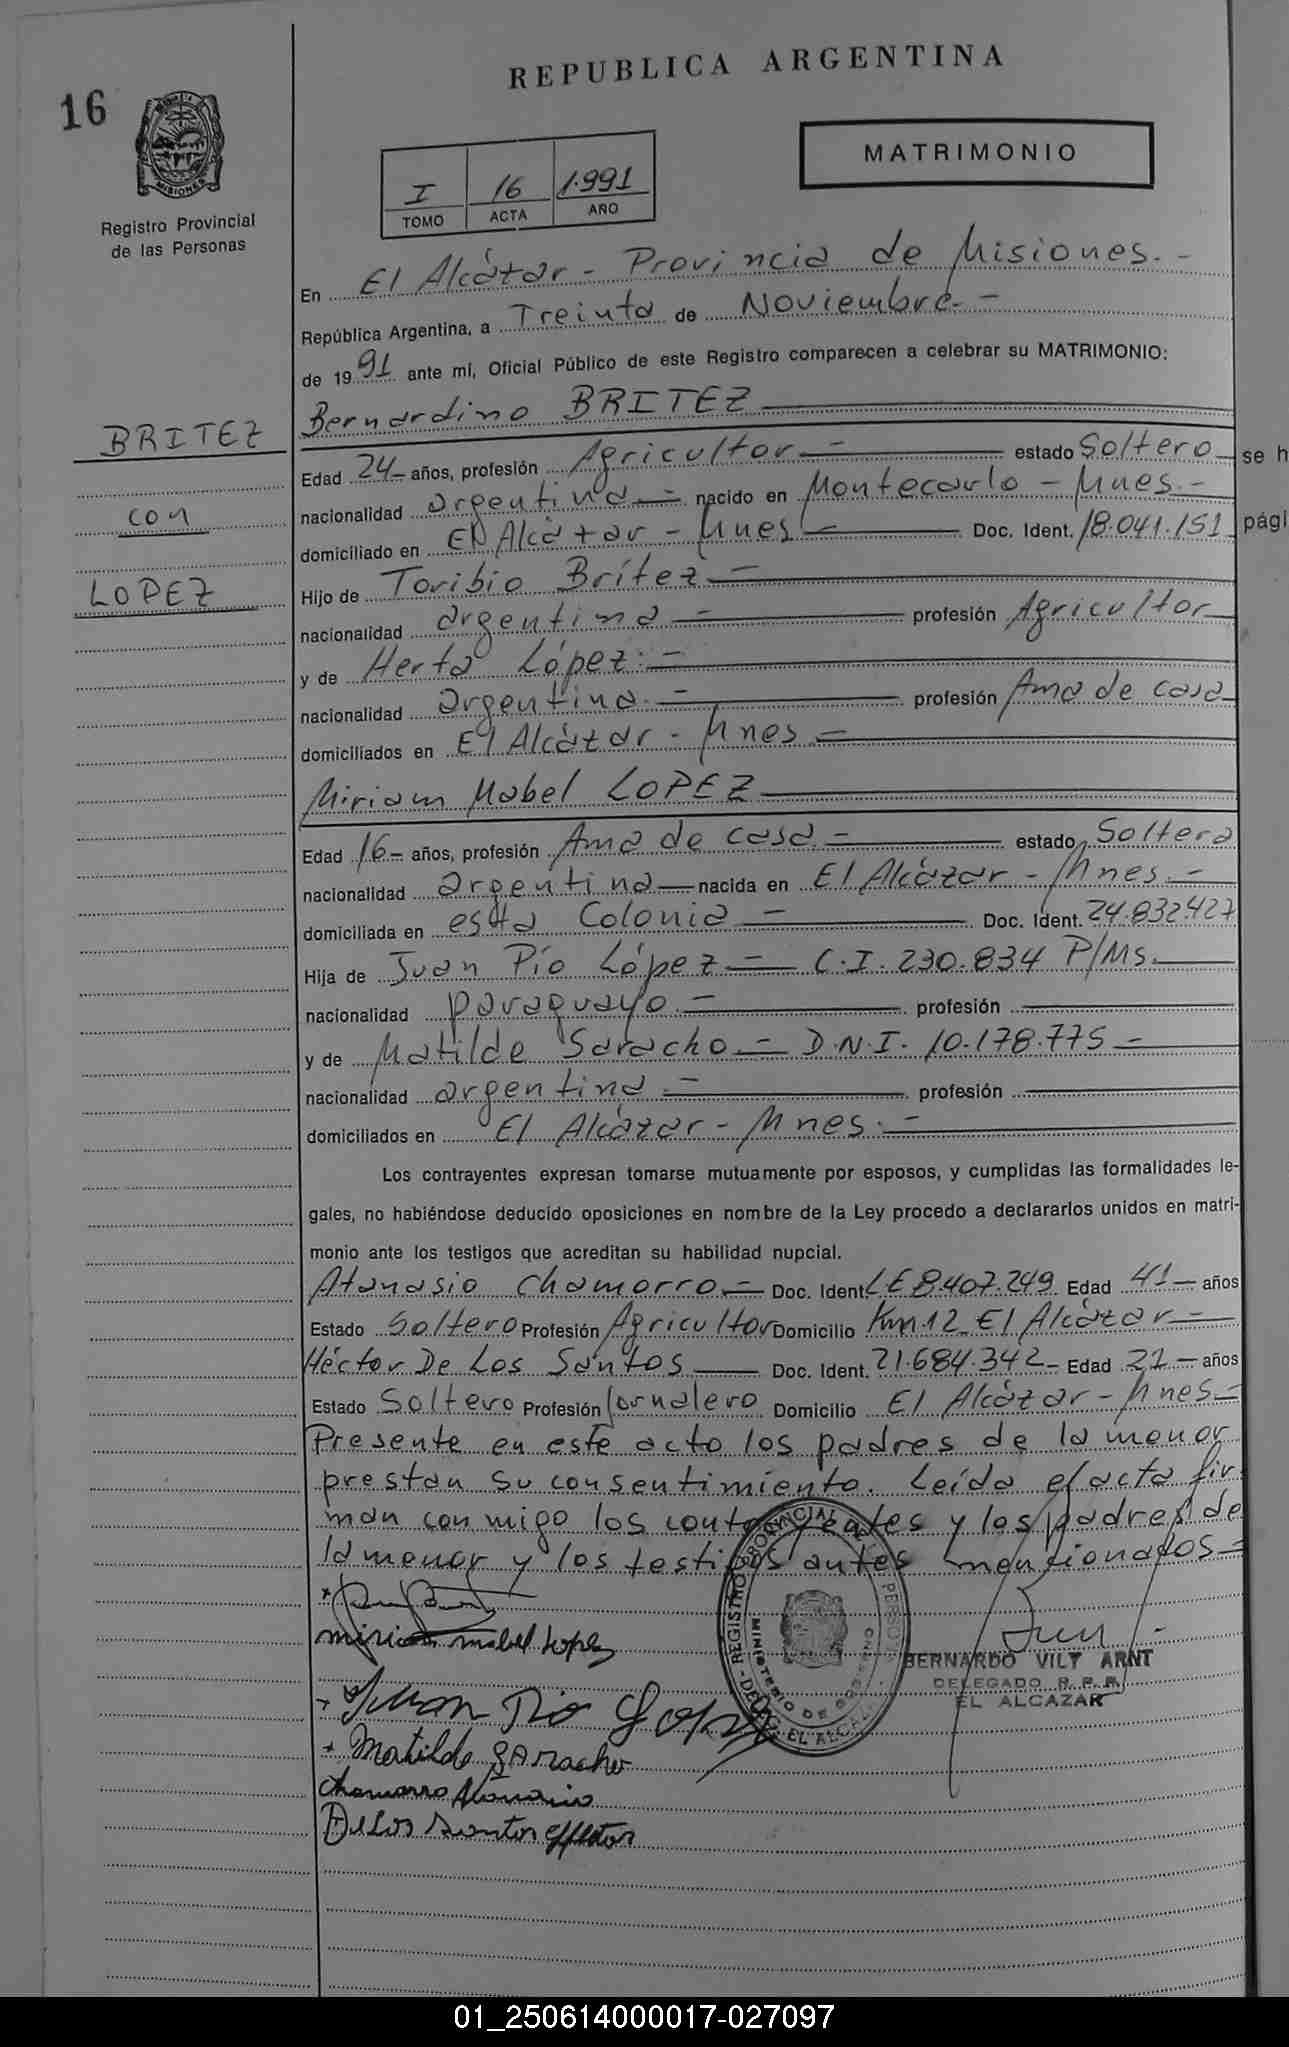 REPUBLICA ARGENTINA
16
MISIONES
Registro Provincial
de las Personas
MATRIMONIO
I 16 1.991
TOMO ACTA AÑO
En El Alcázar - Provincia de Misiones. -
República Argentina, a Treinta de Noviembre. -
de 1991 ante mí, Oficial Público de este Registro comparecen a celebrar su MATRIMONIO:
Bernardino BRITEZ
BRITEZ
con
LOPEZ
Edad 24 - años, profesión Agricultor - estado Soltero
nacionalidad argentina - nacido en Montecarlo - Mnes. -
domiciliado en El Alcázar - Mnes - Doc. Ident. 18.041.151
Hijo de Toribio Brítez -
nacionalidad argentina - profesión Agricultor
y de Herta López. -
nacionalidad argentina. - profesión Ama de casa
domiciliados en El Alcázar - Mnes. -
Miriam Mabel LOPEZ
Edad 16 - años, profesión Ama de casa. - estado Soltera
nacionalidad argentina - nacida en El Alcázar - Mnes. -
domiciliada en esta Colonia - Doc. Ident. 24.832.427
Hija de Juan Pío López - C.I. 230.834 P/Ms.
nacionalidad paraguayo. - profesión
y de Matilde Saracho. - D.N.I. 10.178.775 -
nacionalidad argentina. - profesión
domiciliados en El Alcázar - Mnes. -
Los contrayentes expresan tomarse mutuamente por esposos, y cumplidas las formalidades le-
gales, no habiéndose deducido oposiciones en nombre de la Ley procedo a declararlos unidos en matri-
monio ante los testigos que acreditan su habilidad nupcial.
Atanasio Chamorro. - Doc. Ident. L.E 8.407.249 Edad 41 - años
Estado Soltero Profesión Agricultor Domicilio Km.12 El Alcázar -
Héctor De Los Santos Doc. Ident. 21.684.342 - Edad 21 - años
Estado Soltero Profesión Jornalero Domicilio El Alcázar - Mnes -
Presente en este acto los padres de la menor
prestan su consentimiento. Leída el acta fir
man conmigo los contrayentes y los padres de
la menor y los testigos antes mencionados -
miriam mabel Lopez
Juan Pio Lopez
Matilde SAracho
Chamorro Atanasio
De Los Santos Hector
REGISTRO PROVINCIAL DE LAS PERSONAS
MINISTERIO DE GOBIERNO
EL ALCAZAR
BERNARDO VILY ARNT
DELEGADO R. P. P.
EL ALCAZAR
se h
pági
01_250614000017-027097